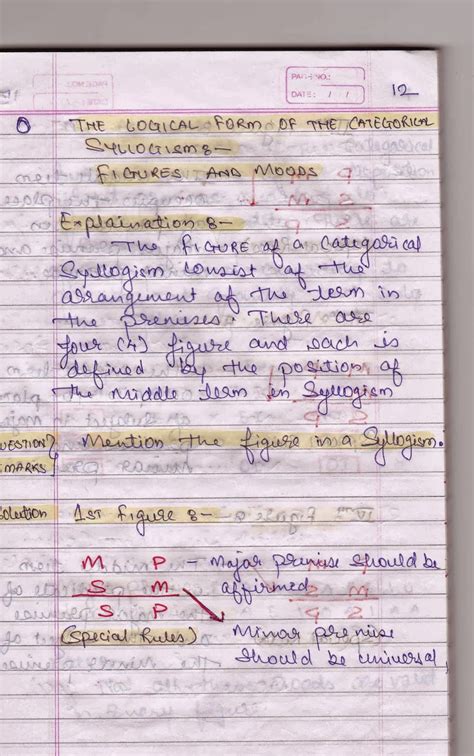 PAGE NO.:
DATE: / /
12
THE LOGICAL FORM OF THE CATEGORICAL
SYLLOGISM :-
FIGURES AND MOODS
Explaination :-
The FIGURE of a Categorical
Syllogism consist of the
arrangement of the term in
the premises. There are
four (4) figure and each is
defined by the position of
the middle term in Syllogism
QUESTION? Mention the figure in a Syllogism.
MARKS
Solution 1st figure :-
M P - Major premise should be
S M affirmed
S P
(Special Rules) Minor premise
should be universal